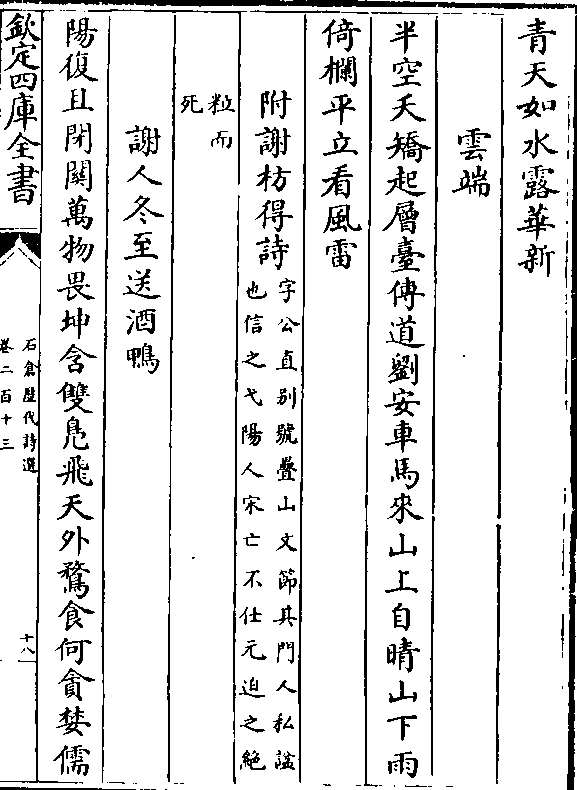 青天如水露華新
雲端
半空夭矯起層臺傳道劉安車馬來山上自晴山下雨
倚欄平立看風雷
附謝枋得詩
字公直别號疊山文節其門人私諡
也信之弋陽人宋亡不仕元迫之絶
粒而
死
謝人冬至送酒鴨
陽復且閉關萬物畏坤含雙鳬飛天外鶩食何貪婪儒
欽定四庫全書
石倉歷代詩選
卷二百十三
十八